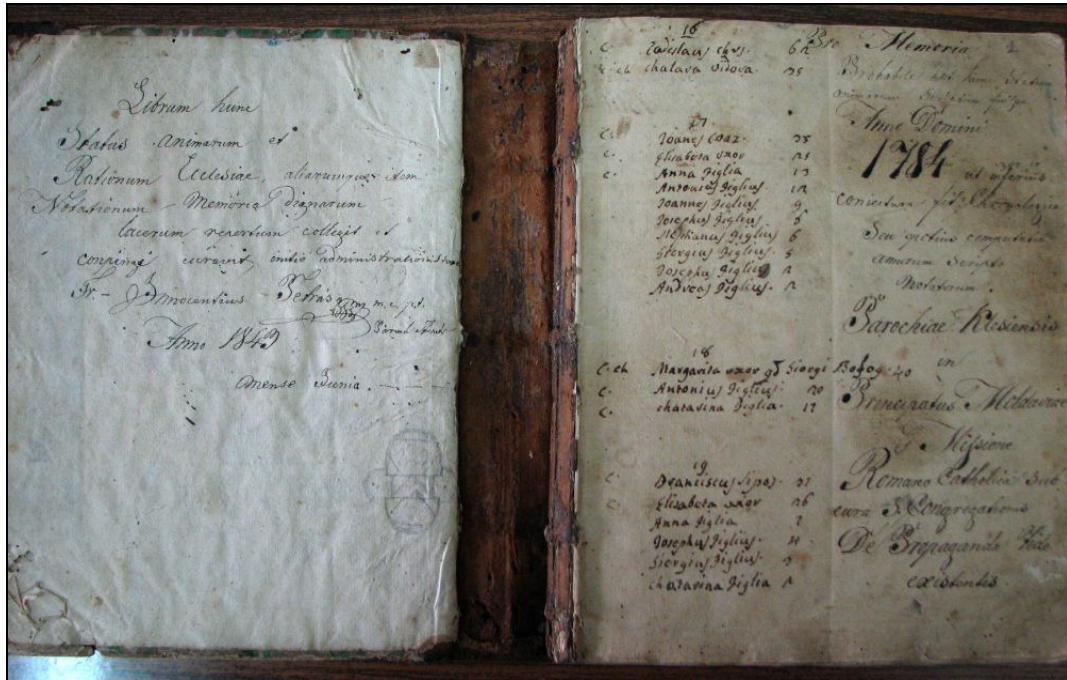 Librum hunc
Status animarum et
Rationum Ecclesiae, aliarumque item
Notationum Memoria dignarum
lacerum repertum collegit et
compingi curavit initio administrationis suae
Fr. Innocentius Petrás m.c. pt.
Anno 1843
mense Junio.
16
C. Ladislaus chrs. 62
C. ch chatava vidova. 25
17
C. Joanes Coaz. 35
C. Elisabeta uxor 25
C. Anna Figlia 13
Antonius Figlius. 12
Joannes Figlius 9
Josephus Figlius. 8
Stephanus Figlius 6
Giorgius Figlius. 5
Josephus Figlius 2
Andreas Figlius. 2
18
C. ch Margarita uxor qd Giorgi Bofog. 40
C. Antonius Figlius. 20
C. chatavina Figlia. 17
19
C. Franciscus Sipos. 32
C. Elisabeta uxor 26
Anna Figlia 7
Josephus Figlius. 4
Giorgius Figlius. 3
chatarina Figlia 2
Pro Memoria 1
Probabile est hunc Statum
animarum
Anno Domini
1784 ut inferius
conjectura fit Chronologica
Seu computatio
annorum Scripto
Notatorum.
Parochiae Klesiensis
in
Principatus Moldaviae
Missione
Romano Catholica Sub
cura S. Congregationis
De Propaganda Fide
existentis